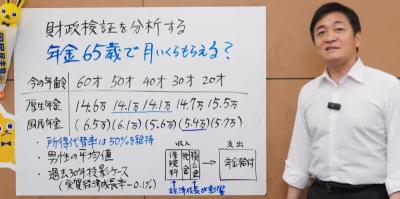 財政検証を分析する
年金65歳で月いくらもらえる?
今の年齢 60才 50才 40才 30才 20才
厚生年金 14.6万 14.1万 14.1万 14.7万 15.5万
国民年金 (6.5万) (6.1万) (5.6万) (5.4万) (5.7万)
・所得代替率は50%を維持
・男性の平均値
・過去30年投影ケース
(実質経済成長率-0.1%)
収入 支出
保険料 税金 積立金 → 年金給付
経済成長が影響